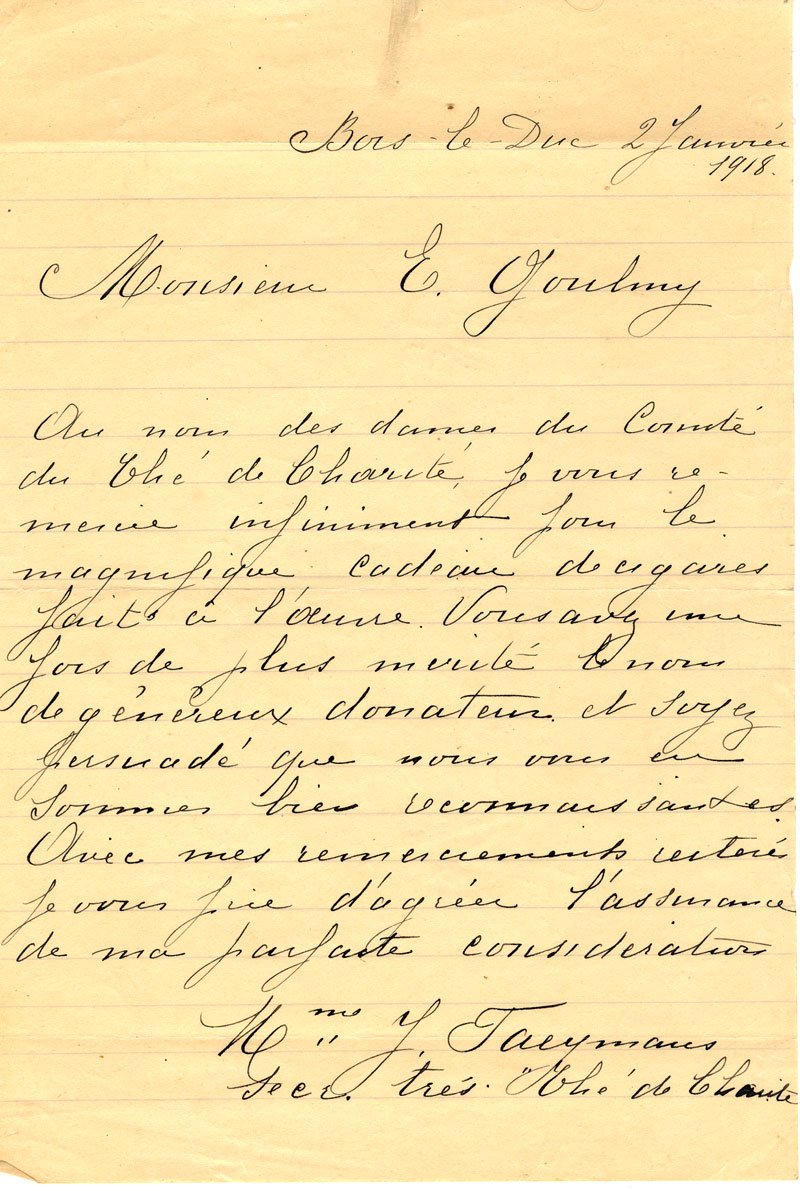 Bois-le-Duc 2 Janvier
1918.
Monsieur E. Goulmy
Au nom des dames du Comité
du Thé de Charité, je vous re-
mercie infiniment pour le
magnifique cadeau de cigares
fait à l'œuvre. Vous avez une
fois de plus mérité le nom
de généreux donateur et soyez
persuadé que nous vous en
sommes bien reconnaissantes.
Avec mes remerciements réitérés
je vous prie d'agréer l'assurance
de ma parfaite considération
Mme J. Taeymans
Secr. trés. "Thé de Charité